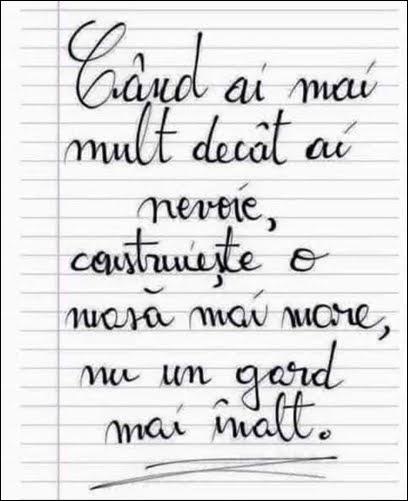 Când ai mai
mult decât ai
nevoie,
construiește o
masă mai mare,
nu un gard
mai înalt.